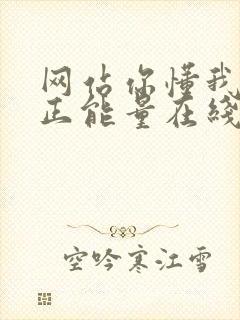 网站你懂我
正能量在线
空吟寒江雪